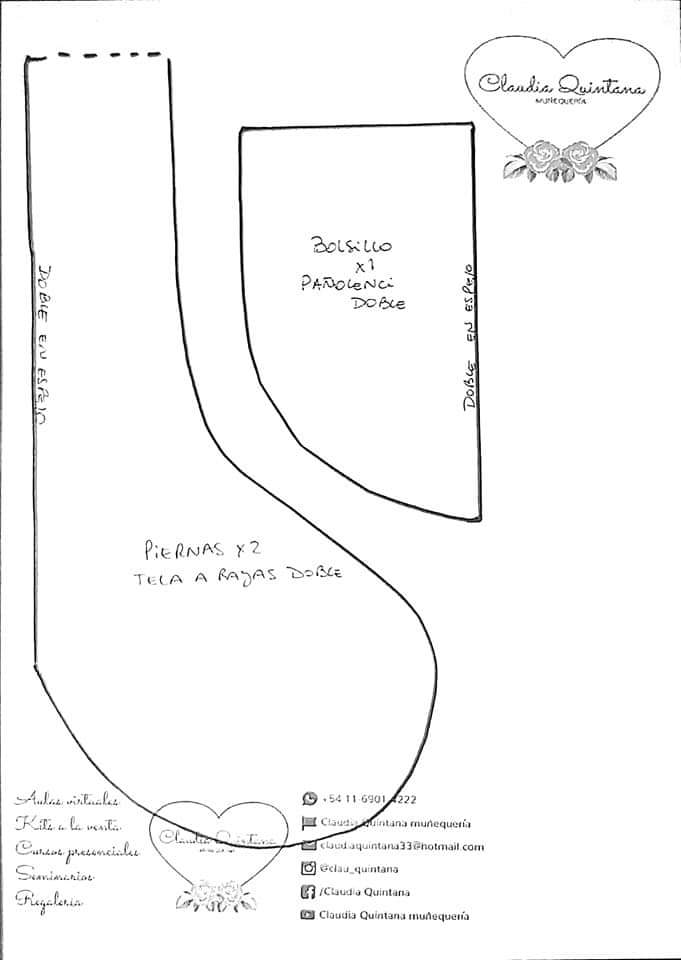 Claudia Quintana
MUÑEQUERÍA
BOLSILLO
x1
PAÑOLENCI
DOBLE
DOBLE EN ESPEJO
DOBLE EN ESPEJO
PIERNAS x2
TELA A RAYAS DOBLE
Aulas virtuales
Kits a la venta
Cursos presenciales
Seminarios
Regalería
Claudia Quintana
+54 11-6901-4222
Claudia Quintana muñequería
claudiaquintana33@hotmail.com
@clau_quintana
/Claudia Quintana
Claudia Quintana muñequería